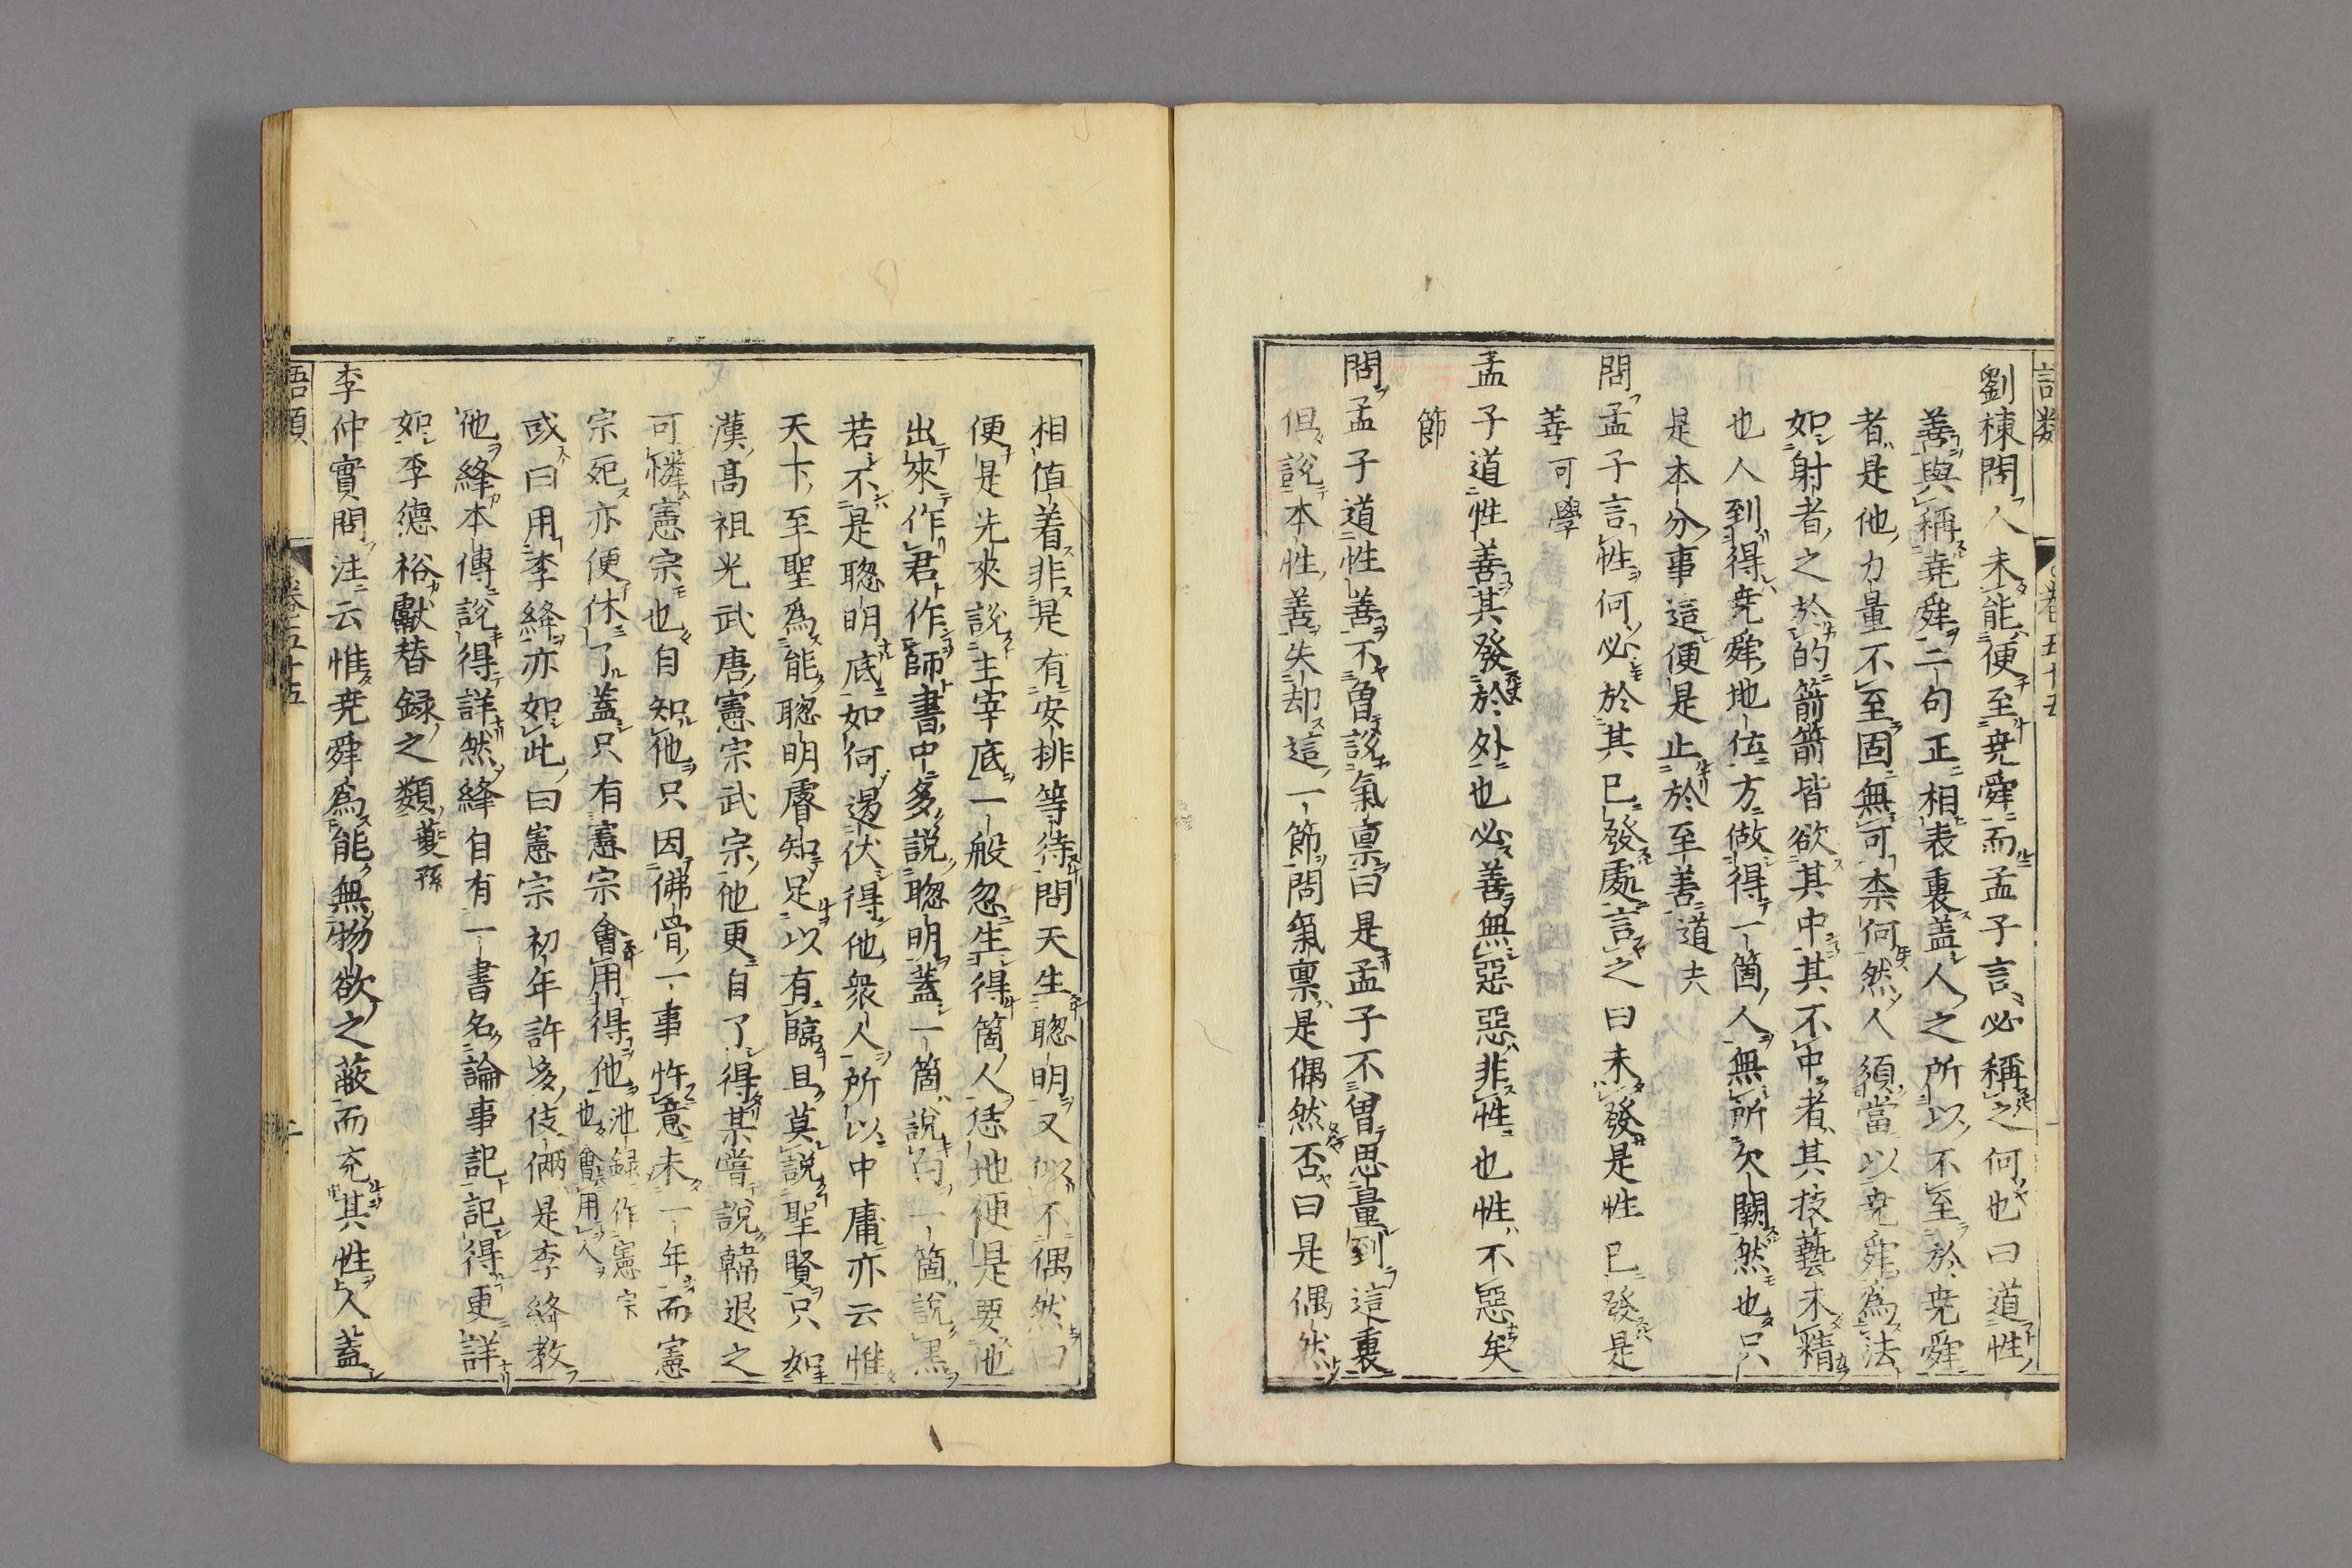 劉棟問人未能便至堯舜而孟子言必稱之何也曰道性
善與稱堯舜二句正相表裏蓋人之所以不至於堯舜
者是他力量不至固無可柰何然人須當以堯舜爲法
如射者之於的箭箭皆欲其中其不中者其技藝未精
也人到得堯舜地位方做得一箇人無所欠闕然也只
是本分事這便是止於至善道夫
問孟子言性何必於其已發處言之曰未發是性已發是
善可學
孟子道性善其發於外也必善無惡惡非性也性不惡矣
節
問孟子道性善不曾說氣稟曰是孟子不曾思量到這裏
但說本性善失却這一節問氣稟是偶然否曰是偶然
相值着非是有安排等待問天生聰明又似不偶然曰
便是先來說主宰底一般忽生得箇人恁地便是要他
出來作君作師書中多說聰明蓋一箇說白一箇說黑
若不是聰明底如何遏伏得他衆人所以中庸亦云惟
天下至聖爲能聰明睿知足以有臨且莫說聖賢只如
漢高祖光武唐憲宗武宗他更自了得某嘗說韓退之
可憐憲宗也自知他只因佛骨一事忤意未一年而憲
宗死亦便休了蓋只有憲宗會用得他池録作憲宗也會用人
或曰用李絳亦如此曰憲宗初年許多伎倆是李絳教
他絳本傳說得詳然絳自有一書名論事記記得更詳
如李德裕獻替録之類夔孫
李仲實問注云惟堯舜爲能無物欲之蔽而充其性人蓋
語類
卷五十五